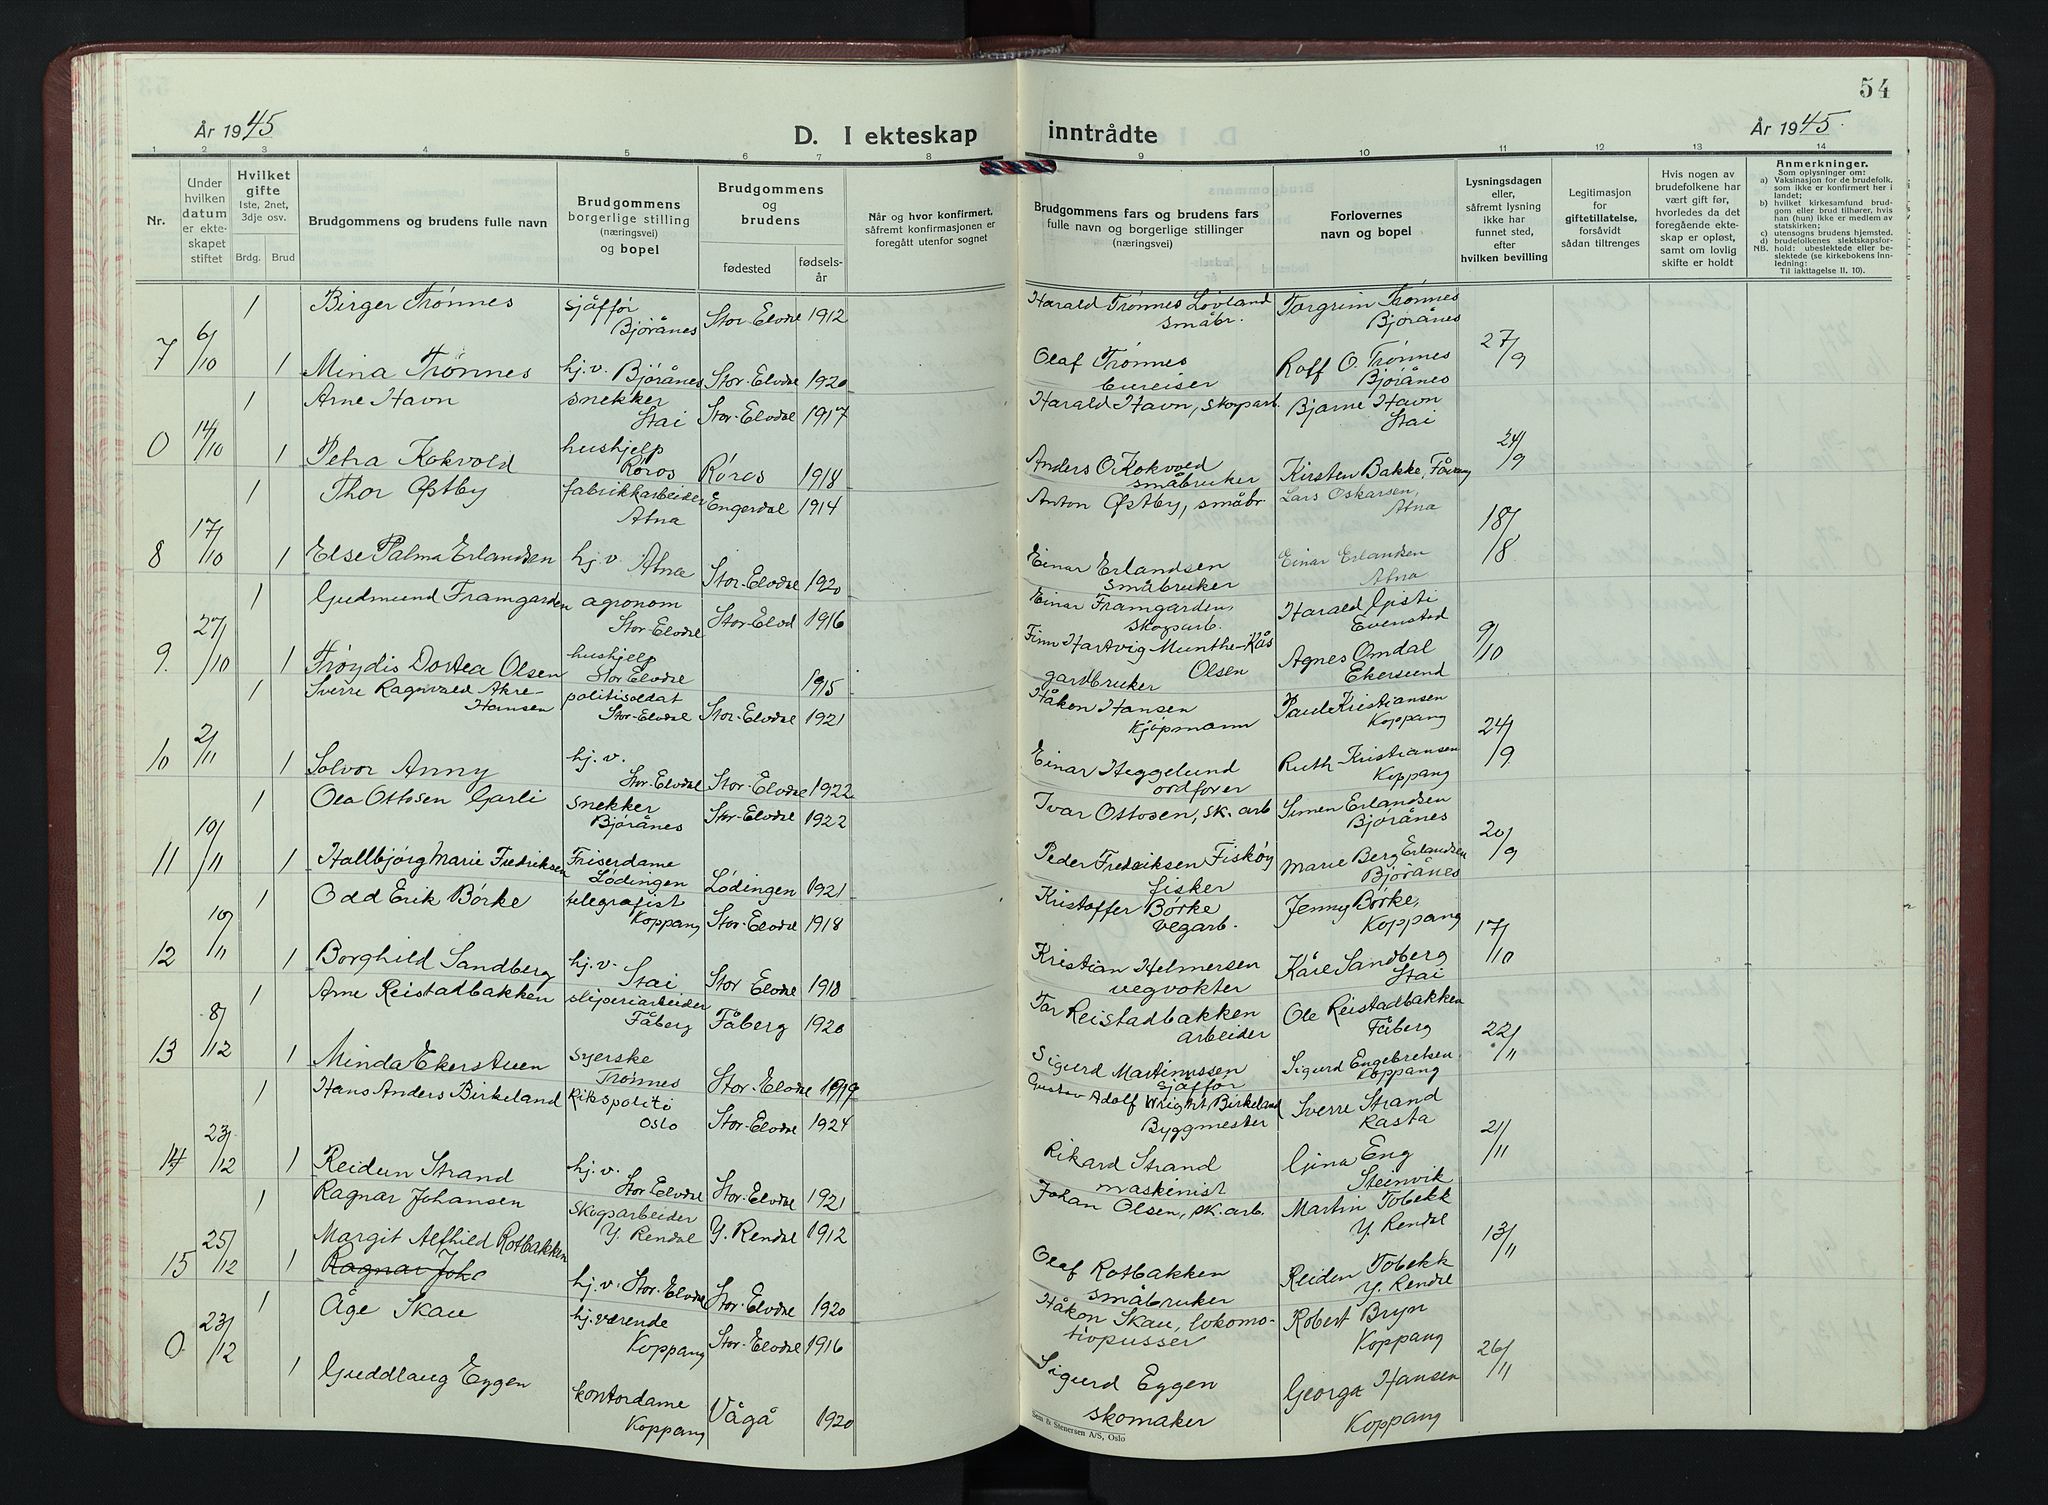 54
År 1945
D. I ekteskap inntrådte
År 1945.
1 2 3 4 5 6 7 8 9 10 11 12 13 14
Nr.
Under hvilken datum er ekteskapet stiftet
Hvilket gifte 1ste, 2net, 3dje osv.
Brdg. Brud
Brudgommens og brudens fulle navn
Brudgommens borgerlige stilling (næringsvei) og bopel
Brudgommens og brudens
fødested
fødselsår
Når og hvor konfirmert, såfremt konfirmasjonen er foregått utenfor sognet
Brudgommens fars og brudens fars fulle navn og borgerlige stillinger (næringsvei)
Forlovernes navn og bopel
Lysningsdagen eller, såfremt lysning ikke har funnet sted, efter hvilken bevilling
Legitimasjon for giftetillatelse, forsåvidt sådan tiltrenges
Hvis nogen av brudefolkene har vært gift før, hvorledes da det foregående ekteskap er opløst, samt om lovlig skifte er holdt
Anmerkninger.
Som oplysninger om:
a) Vaksinasjon for de brudefolk, som ikke er konfirmert her i landet;
b) hvilket kirkesamfund brudgom eller brud tilhører, hvis han (hun) ikke er medlem av statskirken;
c) utensogns brudens hjemsted.
d) brudefolkenes slektskapsforhold: ubeslektede eller beslektede (se kirkebokens innledning:
NB. Til iakttagelse II. 10).
1 Birger Trønnes sjåffør Bjørånes Stor-Elvdal 1912 Harald Trønnes Løvland småbr. Torgrim Trønnes Bjørånes
7 6/10 1 Mina Trønnes hj.v. Bjørånes Stor-Elvdal 1920 Olaf Trønnes bureiser Rolf O. Trønnes Bjørånes 27/9
1 Arne Havn snekker Stai Stor-Elvdal 1917 Harald Havn, skogarb. Bjarne Havn Stai
0 14/10 1 Petra Kokvold hushjelp Røros Røros 1918 Anders O Kokvold småbruker Kirsten Bakke, Fåvang 24/9
1 Thor Østby fabrikkarbeider Atna Engerdal 1914 Anton Østby, småbr. Lars Oskarsen, Atna
8 17/10 1 Else Palma Erlandsen hj.v. Atna Stor-Elvdal 1920 Einar Erlandsen småbruker Einar Erlandsen Atna 18/8
1 Gudmund Framgarden agronom Stor-Elvdal Stor-Elvd 1916 Einar Framgarden, skogarb. Harald Gisti Evenstad
9. 27/10 1 Frøydis Dortea Olsen hushjelp Stor Elvdal 1915 Finn Hartvig Munthe-Kås Olsen gardbruker Agnes Omdal Ekersund 9/10
1 Sverre Ragnvald Akre-Hansen politisoldat Stor-Elvdal Stor-Elvdal 1921 Håkon Hansen Kjøpmann Paul Kristiansen Koppang
10 2/11 1 Solvor Anny hj.v. Stor-Elvdal Stor-Elvdal 1922 Einar Heggelund ordfører Ruth Kristiansen Koppang 24/9
1 Ola Ottosen Garli snekker Bjørånes Stor-Elvdal 1922 Ivar Ottosen, sk. arb Simen Erlandsen Bjørånes
11 10/11 1 Hallbjørg Marie Fredriksen Friserdame Lødingen Lødingen 1921 Peder Fredriksen Fiskøy fisker Marie Berg Erlandsen Bjørånes 20/9
1 Odd Erik Børke telegrafist Koppang Stor-Elvdal 1918 Kristoffer Børke vegarb. Jenny Børke, Koppang
12 10/11 1 Borghild Sandberg hj.v. Stai Stor Elvdal 1918 Kristian Helmersen vegvokter Kåre Sandberg Stai 17/10
1 Arne Reistadbakken sliperiarbeider Fåberg Fåberg 1920 Tor Reistadbakken arbeider Ole Reistadbakken Fåberg
13 8/12 1 Minda Ekerstuen syerske Trønnes Stor-Elvdal 1919 Sigurd Martinussen sjåffør Sigurd Engebretsen Koppang 22/11
1 Hans Anders Birkeland Rikspoliti Oslo Stor-Elvdal 1924 Gustav Adolf Wright Birkeland Byggmester Sverre Strand Rasta
14 23/12 1 Reidun Strand hj.v. Stor Elvdal Stor-Elvdal 1921 Rikard Strand maskinist Gina Eng Steinvik 21/11
1 Ragnar Johansen skogsarbeider Y. Rendal Y. Rendal 1912 Johan Olsen, sk. arb. Martin Tobekk Y. Rendal
15 25/12 1 Margit Alfhild Rotbakken Ragnar Joh hj.v. Stor-Elvdal Stor-Elvdal 1920 Olaf Rotbakken småbruker Reiden Tobekk Y. Rendal 13/11
1 Åge Skau hj.værende Koppang Stor-Elvdal 1916 Håkon Skau, lokomotivpusser Robert Bryn Koppang
0 23/12 1 Guddlaug Eggen kontordame Koppang Vågå 1920 Sigurd Eggen skomaker Georga Hansen Koppang 26/11
Sem & Stenersen A/S, Oslo